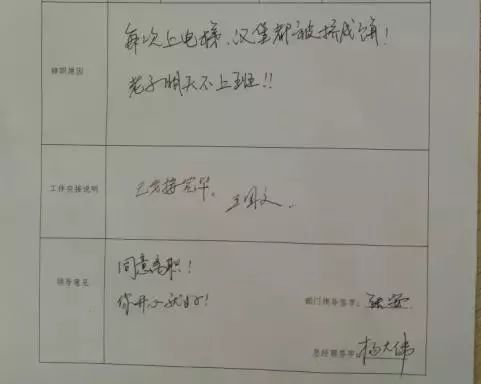 辞职原因
每次上电梯，汉堡都被挤成饼！
老子明天不上班！！
工作交接说明
已交接完毕。
领导意见
同意离职！
你开心就好！
部门领导签字：
总经理签字：杨大伟